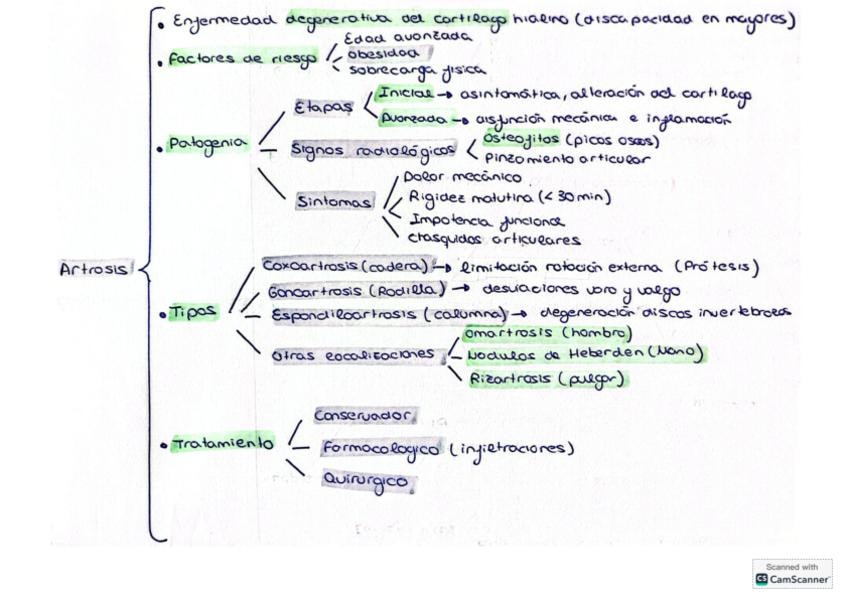 • Enfermedad degenerativa del cartilago hialino (discapacidad en mayores)
Edad avanzada
• Factores de riesgo
obesidad
sobrecarga física
Etapas
Inicial → asintomática, alteración del cartilago
Avanzada → disfunción mecánica e inflamación
• Patogenia
Signos radiológicos
Osteofitos (picos oseos)
Pinzamiento articular
Sintomas
Dolor mecánico
Rigidez matutina (< 30 min)
Impotencia funcional
chasquidos articulares
Artrosis
• Tipos
Coxoartrosis (cadera) → limitación rotación externa (Prótesis)
Gonoartrosis (Rodilla) → desviaciones varo y valgo
Espondiloartrosis (columna) → degeneración discos invertebrales
Otras localizaciones
omartrosis (hombro)
Nodulos de Heberden (Mano)
Rizartrosis (pulgar)
• Tratamiento
Conservador
Farmacologico (infiltraciones)
Quirurgico
Scanned with
CS CamScanner